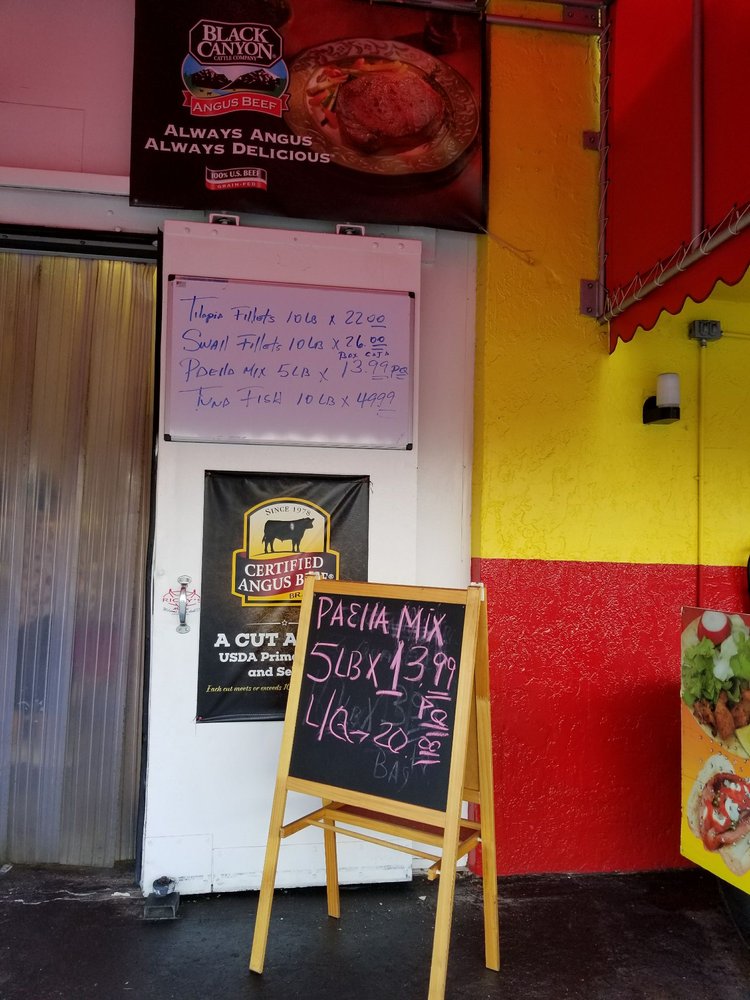 BLACK
CANYON
CATTLE COMPANY
ANGUS BEEF
ALWAYS ANGUS
ALWAYS DELICIOUS
100% U.S. BEEF
GRAIN-FED
Tilapia Fillets 10 LB X 22.00
Swai Fillets 10 LB X 26.00
BOX
PAELLA MIX 5LB X 13.99
TUNA FISH 10 LB X 49.99
SINCE 1978
CERTIFIED
ANGUS BEEF®
BR
A CUT A
USDA Prim
and Se
Each cut meets or exceeds 10
PAElla MIX
5LB X 13.99
BAG